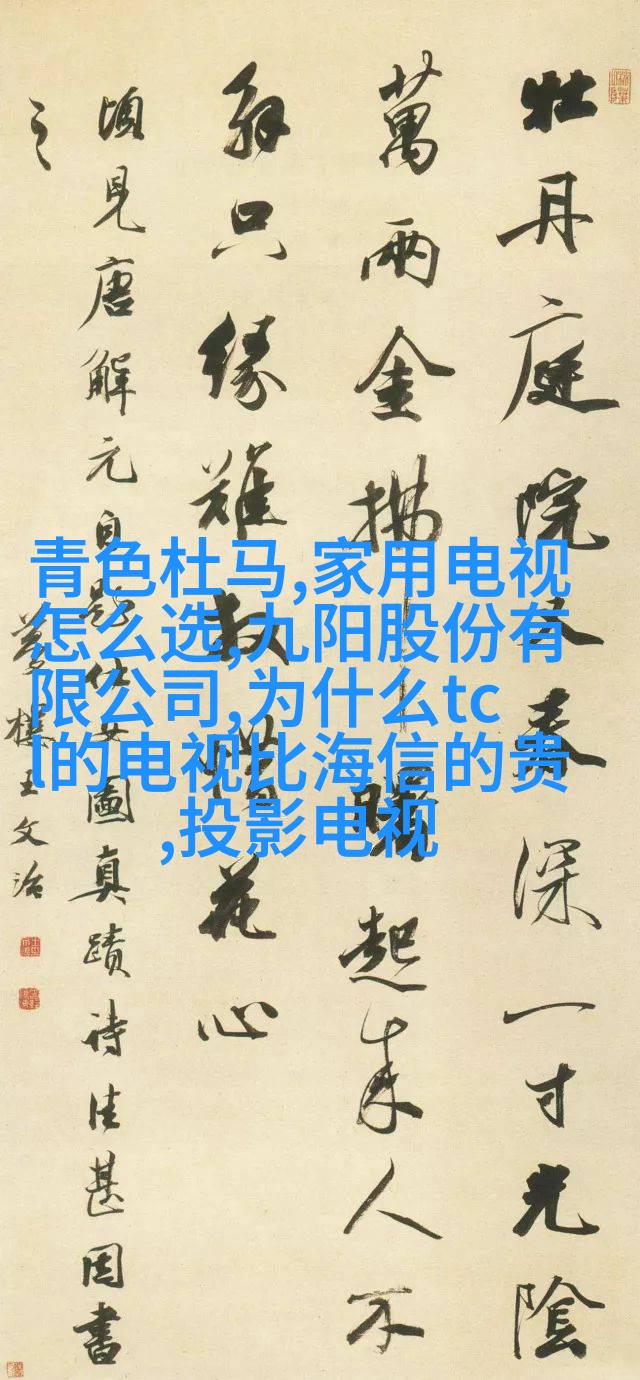 牡丹庭院又春深一寸光陰
萬兩金拂曙起来人不
解只緣難放惜花心
頃見唐解元自題仕女圖真蹟詩佳甚因書
之
夢樓王文治
青色杜马,家用电视
怎么选,九阳股份有
限公司,为什么tc
l的电视比海信的贵
,投影电视